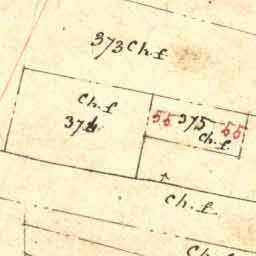 373 Ch.f
Ch.f
374
55 375 55
Ch.f.
Ch.f.
Ch.f